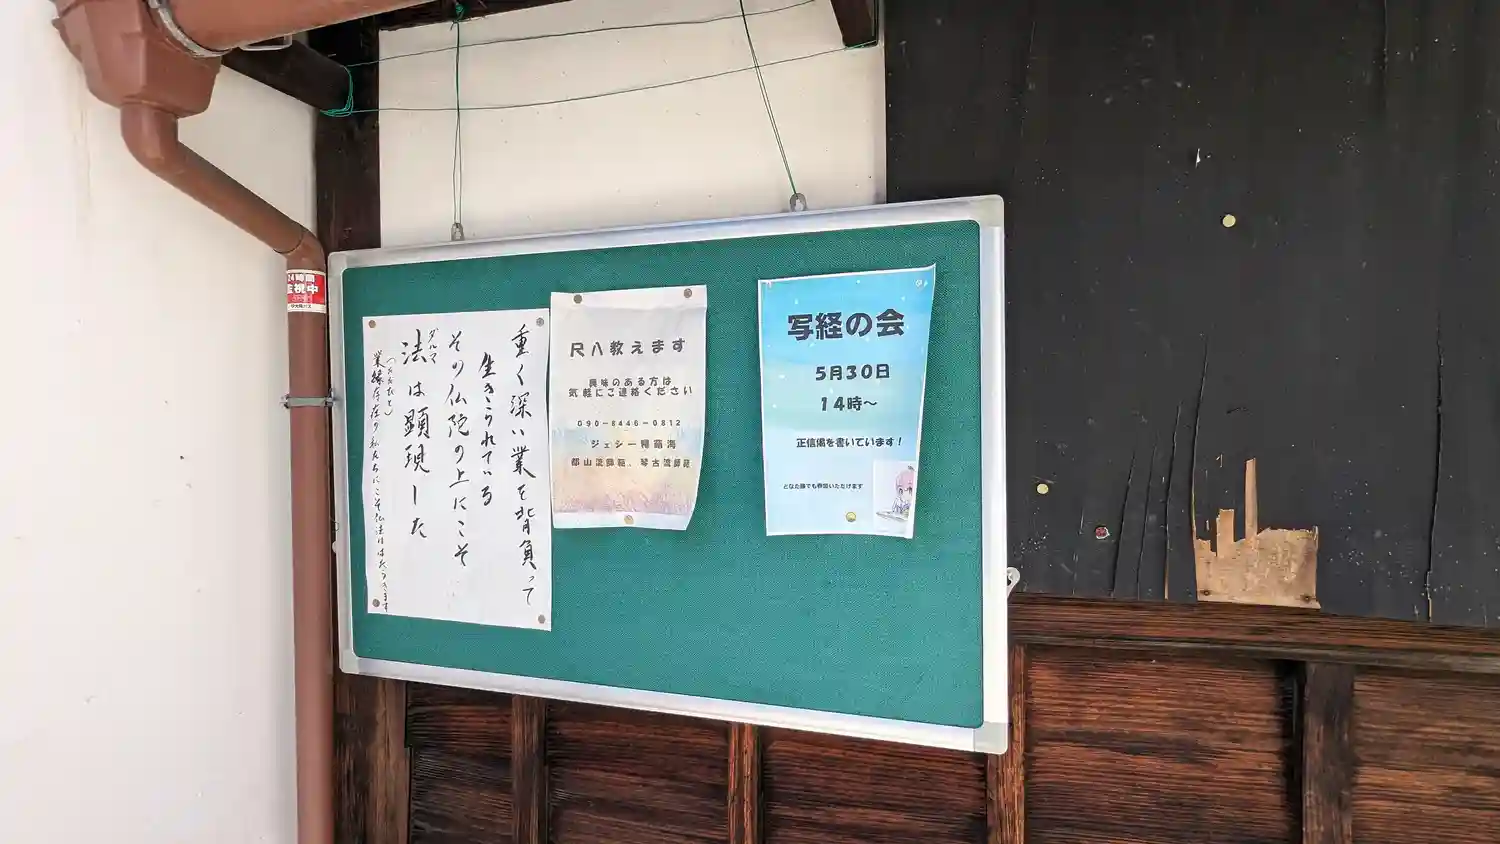 24時間
監視中
重く深い業を背負って
生きられている
その仏陀の上にこそ
ダルマ
法は顕現した
業縁存在の私たちにこそ仏法りはたらきます
尺八教えます
興味のある方は
気軽にご連絡ください
090-8446-0812
ジェシー 竜海
都山流師範、琴古流師範
写経の会
5月30日
14時～
正信偈を書いています!
どなた様でも参加いただけます